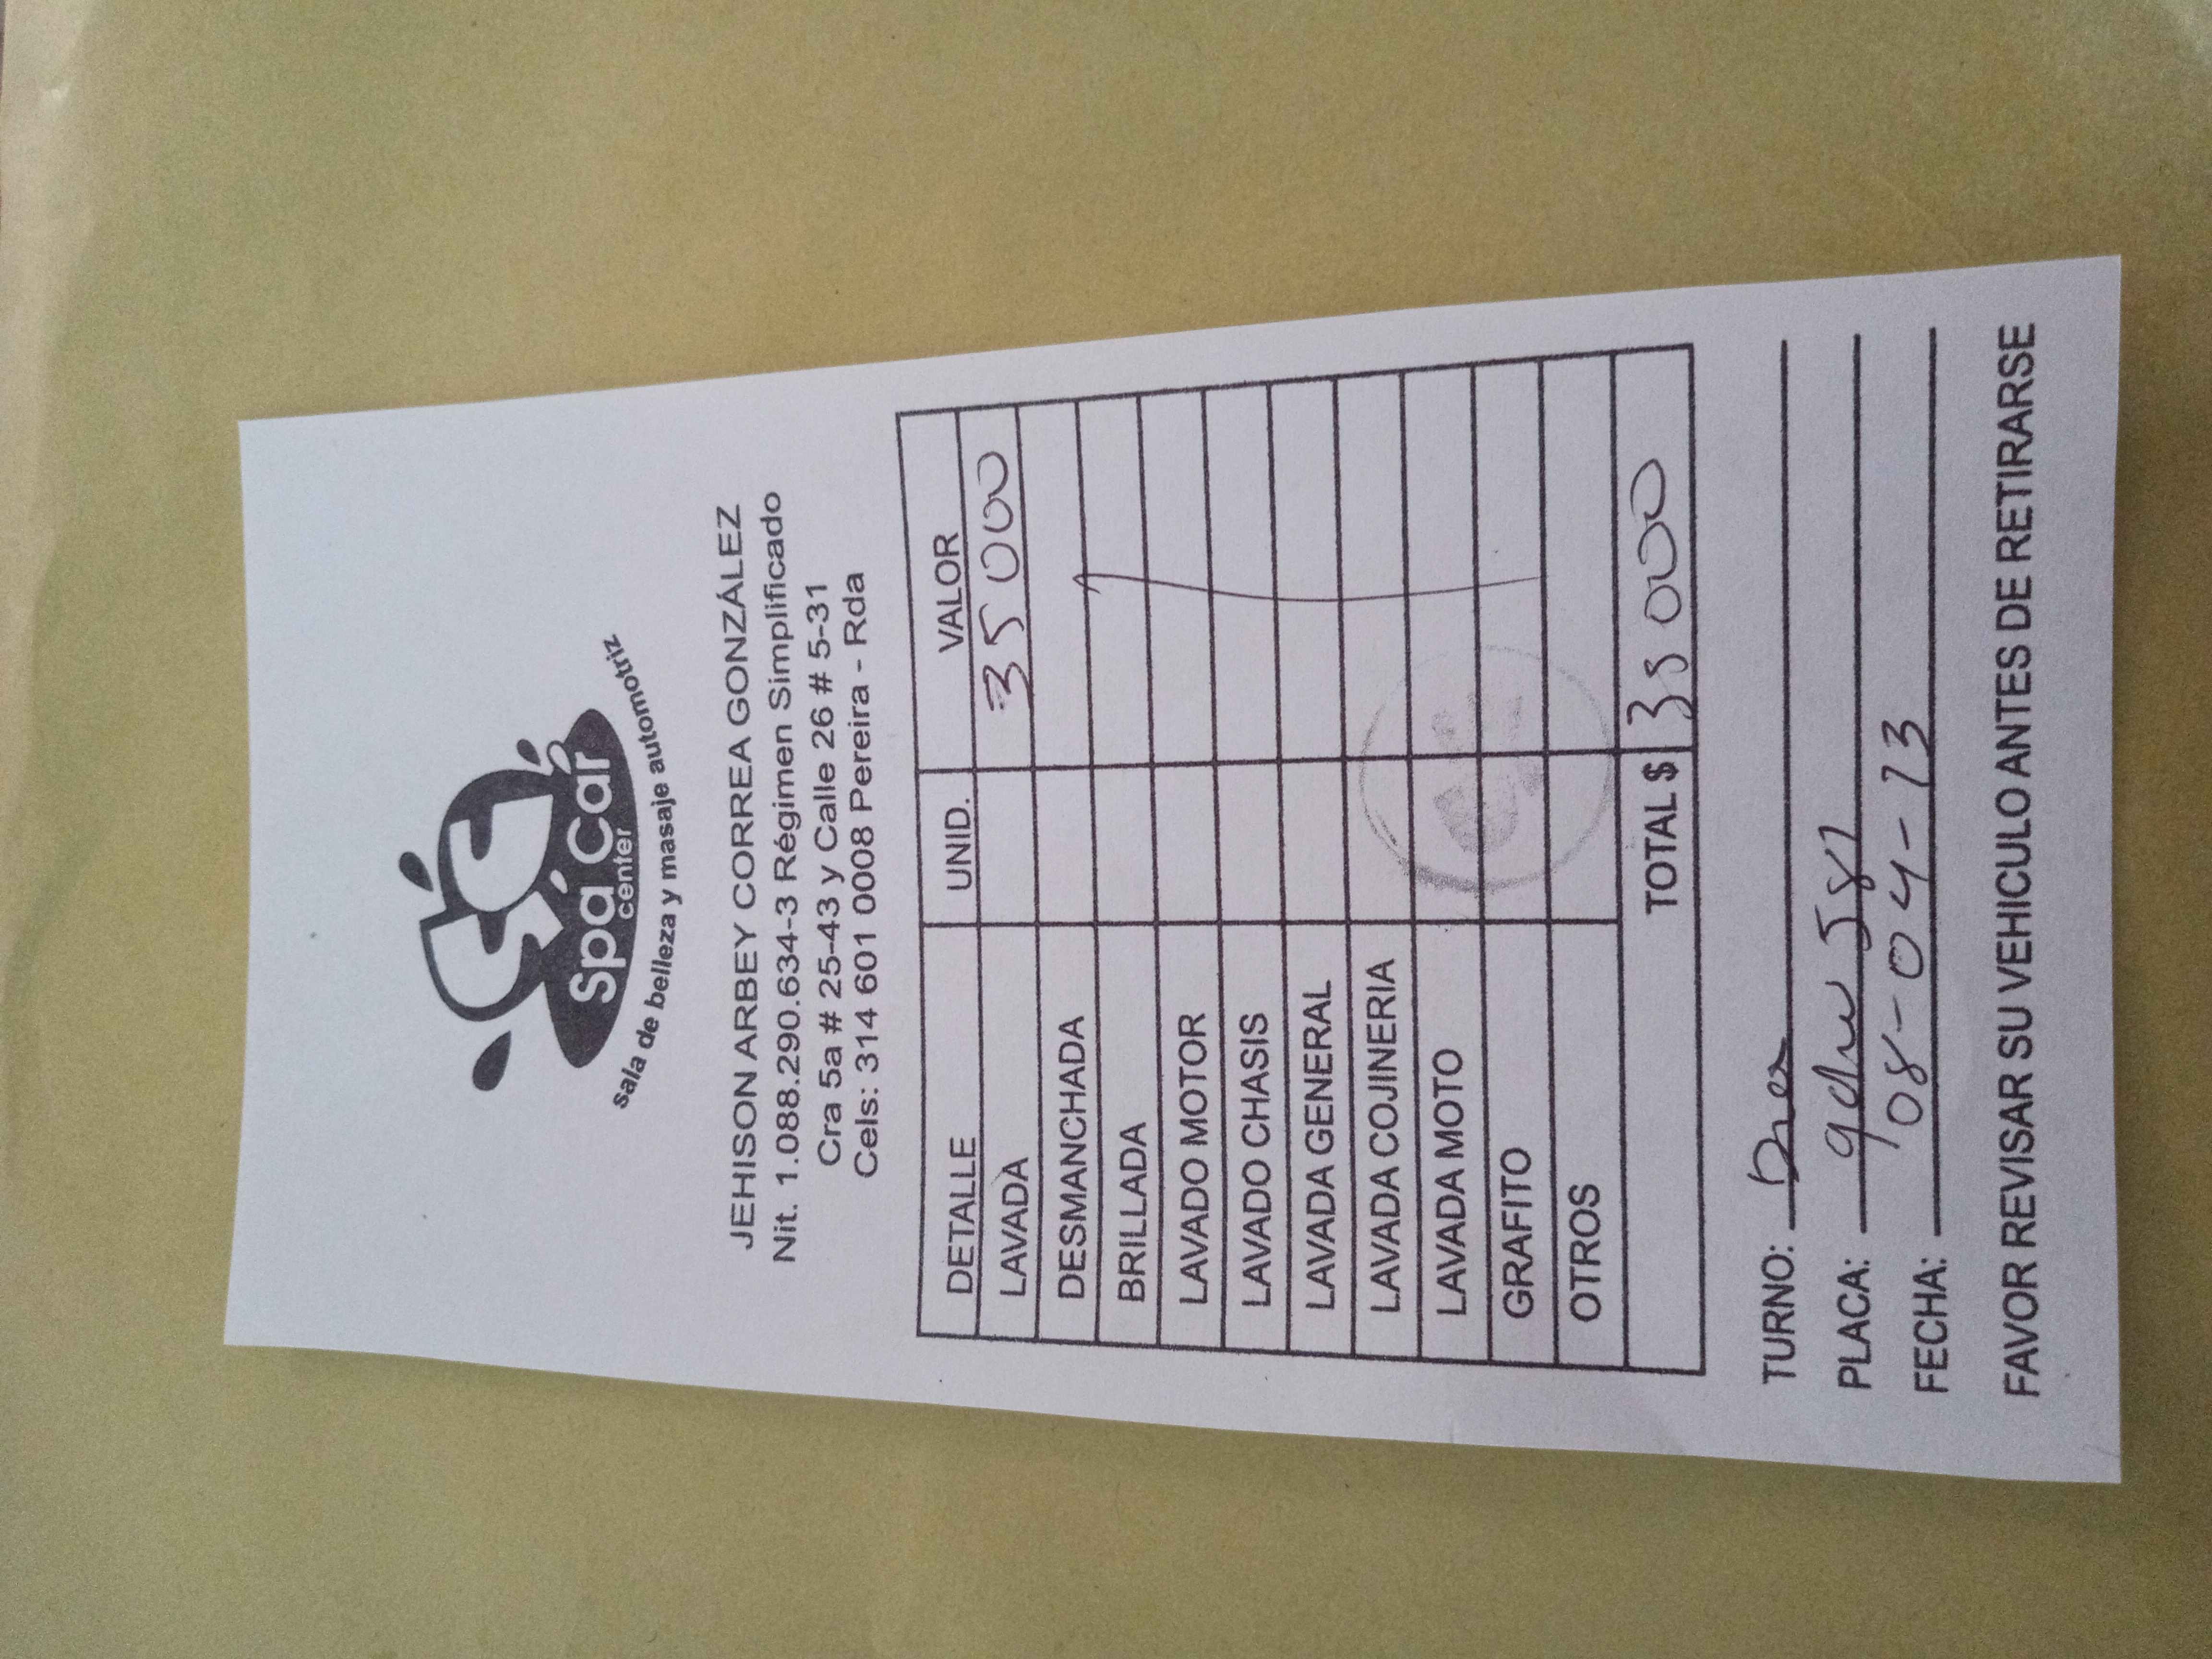 SC
Spa Car
center
sala de belleza y masaje automotriz
JEHISON ARBEY CORREA GONZÁLEZ
Nit. 1.088.290.634-3 Régimen Simplificado
Cra 5a # 25-43 y Calle 26 # 5-31
Cels: 314 601 0008 Pereira - Rda
DETALLE UNID. VALOR
LAVADA 35000
DESMANCHADA
BRILLADA
LAVADO MOTOR
LAVADO CHASIS
LAVADA GENERAL
LAVADA COJINERIA
LAVADA MOTO
GRAFITO
OTROS
TOTAL $ 35000
TURNO:
PLACA: 581
FECHA: 08-04-13
FAVOR REVISAR SU VEHICULO ANTES DE RETIRARSE